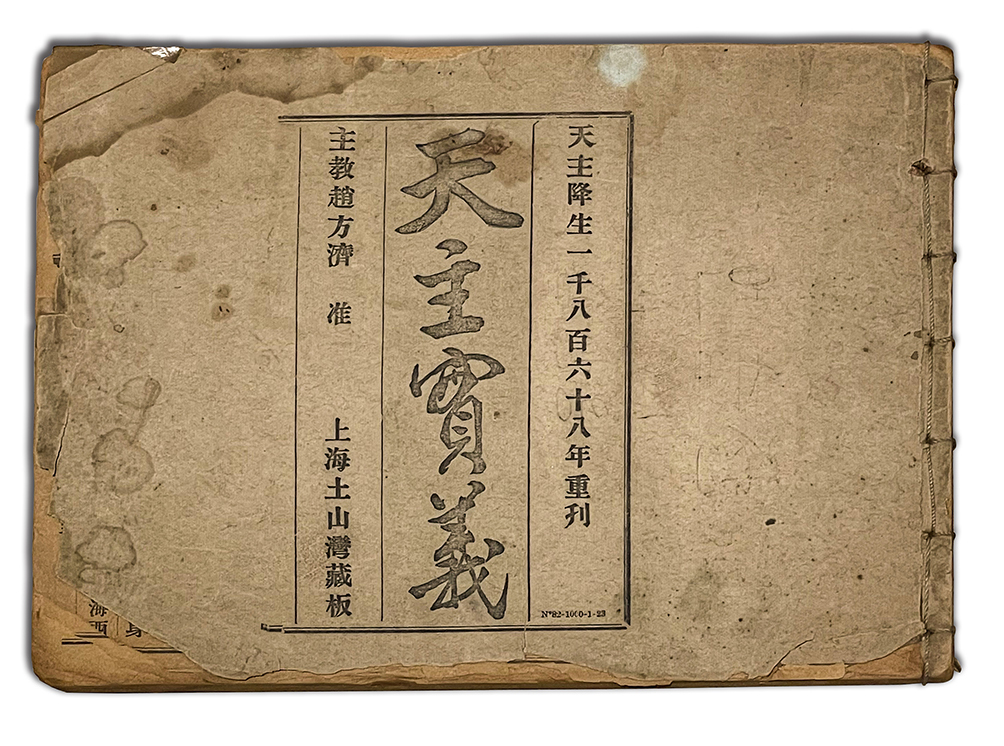 天主降生一千八百六十八年重刊
N°82-1000-1-23
天主實義
主教趙方濟 准 上海土山灣藏板
海西